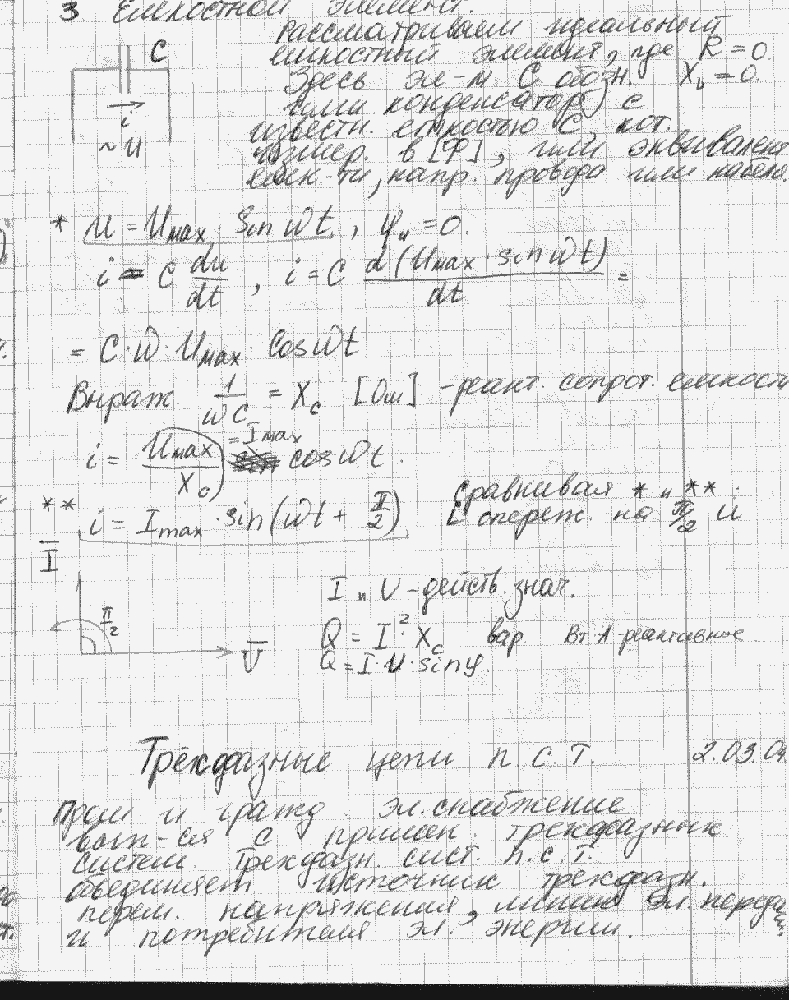 3 Емкостной элемент.
Рассматриваем идеальный
емкостный элемент, где R = 0
Здесь эл-т C обозн. X_L = 0.
или конденсатор с
известн. емкостью C, кот.
измер. в [Ф], или эквивалент
емк-ти, напр. провода или кабеля.
C
i
~ u
* u = U_max · sin ωt, ψ_u = 0.
i = C du/dt, i = C d(U_max · sin ωt)/dt =
= C · ω · U_max cos ωt
Выраж 1/ωC = X_C [Ом] - реакт. сопрот. емкости
i = U_max/X_C = I_max cos ωt.
** i = I_max · sin(ωt + π/2)
Сравнивая * и **:
i опереж. на π/2 u
I
π/2
U
I и U - действ. знач.
Q = I² · X_C вар Вт·А реактивное
Q = I · U · sin φ
Трёхфазные цепи п. с. т. 2.03.04
Пром и гражд. эл. снабжение
вып-ся с примен. трехфазных
систем. Трехфазн. сист. п.с.т.
объединяет источник трехфазн.
перем. напряжения, линию эл. передач
и потребителя эл. энергии.